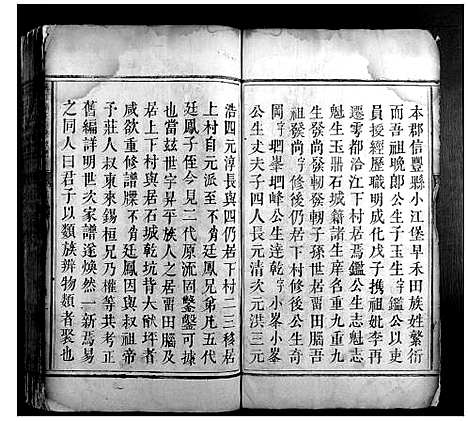 本郡信豐縣小江堡旱禾田族姓繁衍
而吾祖晚郎公生子玉生字鑑公以吏
員援經歷職明成化戊子携祖妣李再
遷雩都洽江下村居焉鑑公生志魁志
魁生玉鼎石城籍諸生庠名重九重九
生發尚發朝發朝子孫世居畱田腦吾
祖發尚字修後仍居下村修後公生奇
岡字𡶶峯𡶶峰公生達可字小峯小峯
公生丈夫子四人長元清次元洪三元
浩四元淳長與四仍居下村二三移居
上村自元派至不肖廷鳳兄弟凡五代
廷鳳子侄今見二代原流固鑿鑿可據
也當玆世字昇平族人之居畱田腦及
居上下村與居石城乾坑背大猷坪者
咸欲重修譜牒不肖廷鳳因與叔祖帝
予莊人叔東來錫桓兄乃權等共考正
舊編詳明世次家譜遂煥然一新焉易
之同人曰君子以類族辨物類者聚也